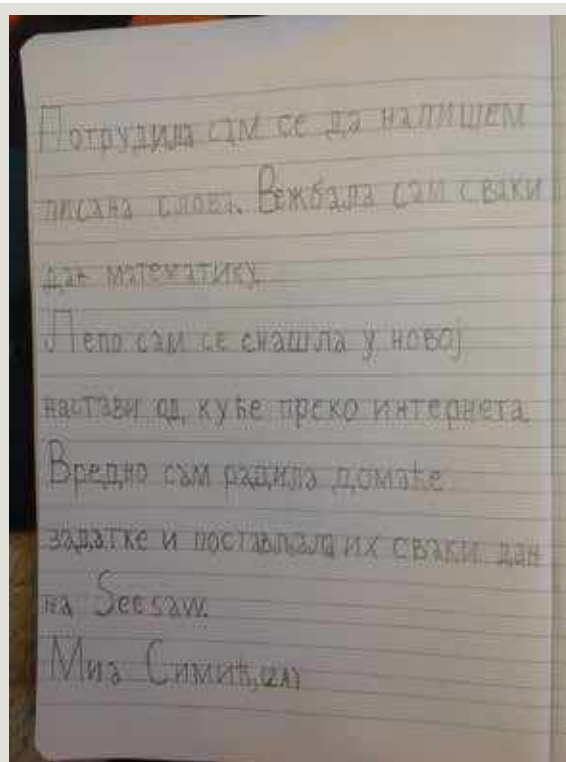 Потрудила сам се да напишем
писана слова. Вежбала сам сваки
дан математику.
Лепо сам се снашла у новој
настави од куће преко интернета.
Вредно сам радила домаће
задатке и постављала их сваки дан
на Seesaw.
Миа Симић,